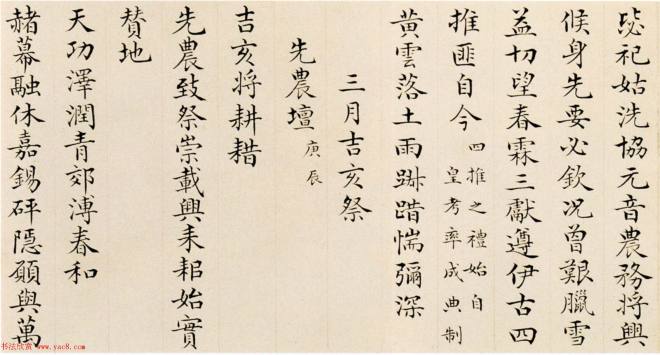 毖祀姑洗協元音農務將興
候身先要必欽况曾艱臘雪
益切望春霖三獻遵伊古四
推匪自今四推之禮始自
皇考率成典制
黃雲落土雨踧踖惴彌深
三月吉亥祭
先農壇庚辰
吉亥將耕耤
先農致祭崇載興耒耜始實
贊地
天功澤潤青郊溥春和
赭幕融休嘉錫砰隱願與萬
书法欣赏 www.yac8.com